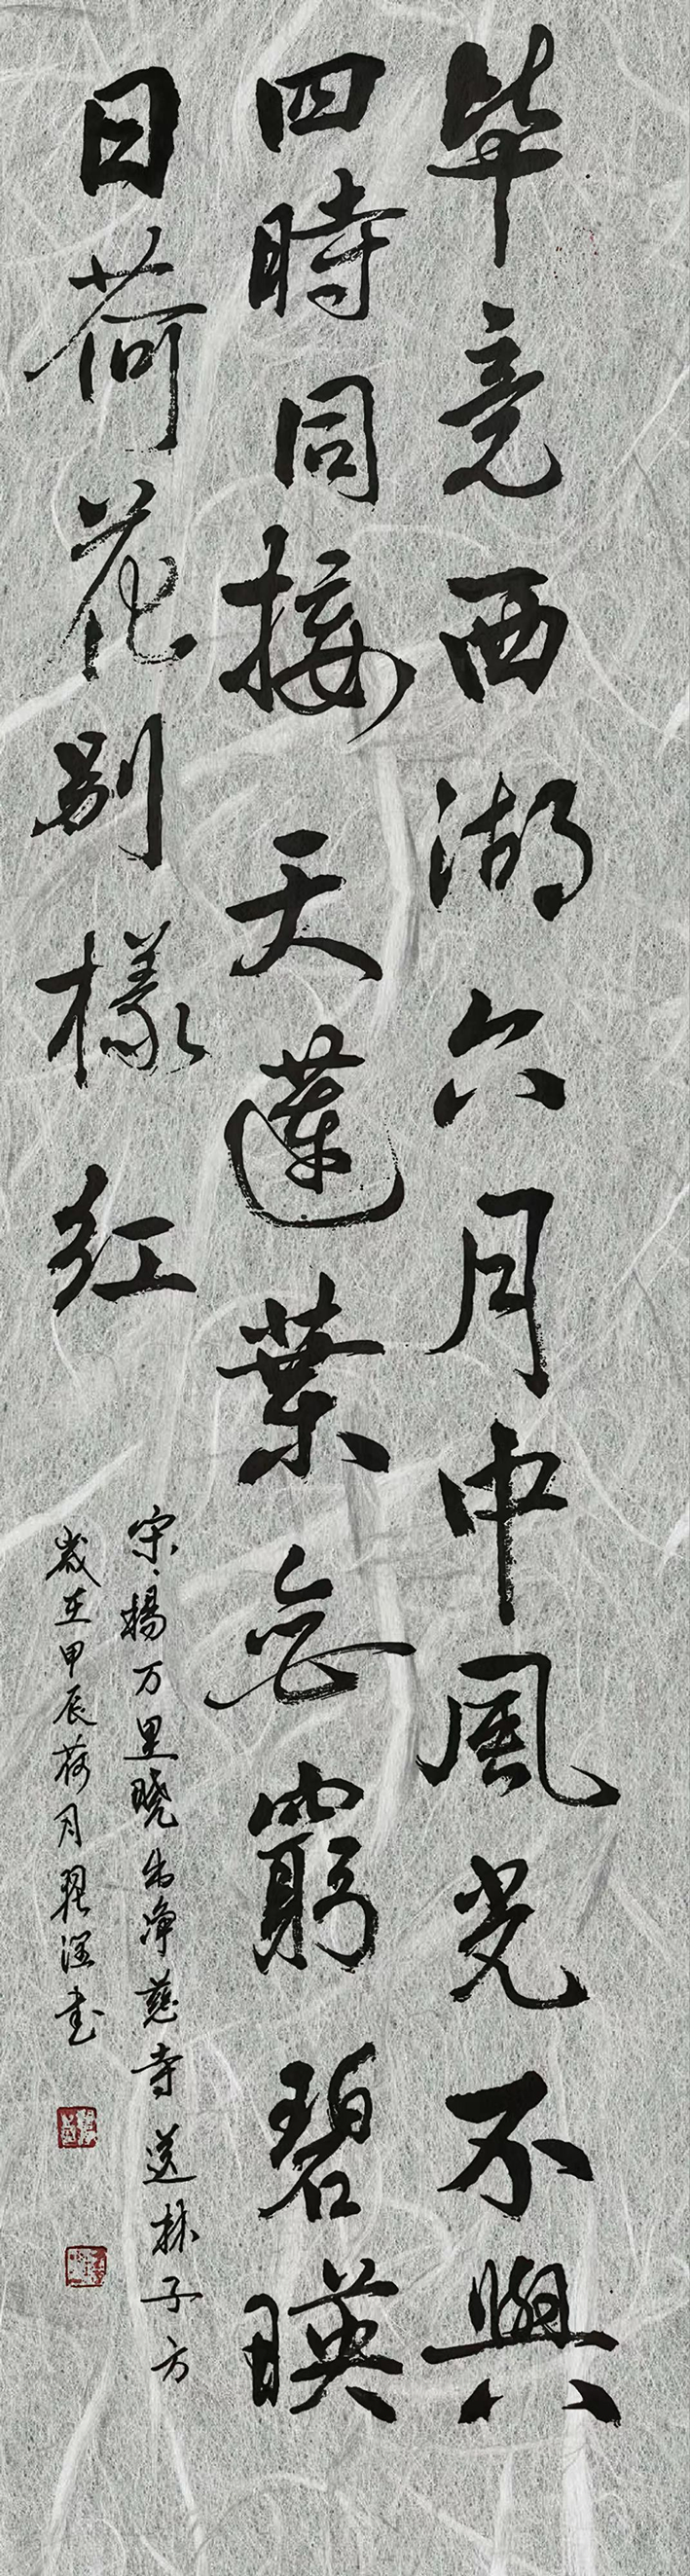 毕竟西湖六月中風光不與
四時同接天蓮葉無窮碧暎
日荷花别樣红
宋楊万里晓出净慈寺送林子方
歲在甲辰荷月翟湦书